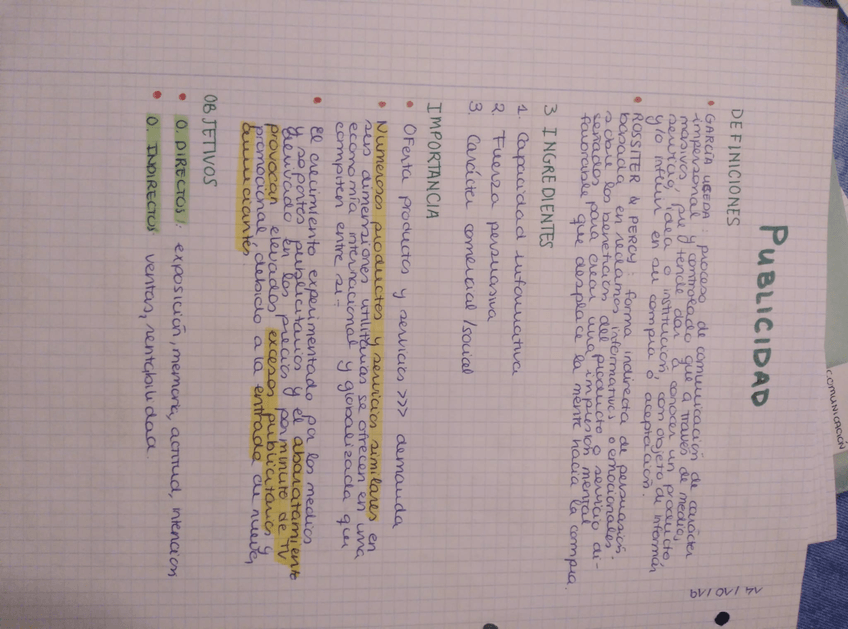 24/10/19
PUBLICIDAD
DEFINICIONES
• GARCÍA UCEDA: proceso de comunicación de carácter
impersonal y controlado que a través de medios
masivos, pretende dar a conocer un producto
servicio, idea o institución, con objeto de informar
y/o influir en su compra o aceptación.
• ROSSITER & PERCY: forma indirecta de persuasión,
basada en reclamos informativos o emocionales
sobre los beneficios del producto o servicio di-
señados para crear una impresión mental
favorable que desplace la mente hacia la compra.
3 INGREDIENTES
1. Capacidad informativa
2. Fuerza persuasiva
3. Carácter comercial/social
IMPORTANCIA
• Oferta productos y servicios >>> demanda
• Numerosos productos y servicios similares en
sus dimensiones utilitarias se ofrecen en una
economía internacional y globalizada que
compiten entre sí.
• El crecimiento experimentado por los medios
y soportes publicitarios y el abaratamiento
derivado en los precios por minuto de TV
provocan elevados excesos publicitarios y
promocional, debido a la entrada de nuevos
anunciantes.
OBJETIVOS
• O. DIRECTOS: exposición, memoria, actitud, intención
• O. INDIRECTOS ventas, rentabilidad
COMUNICACIÓN